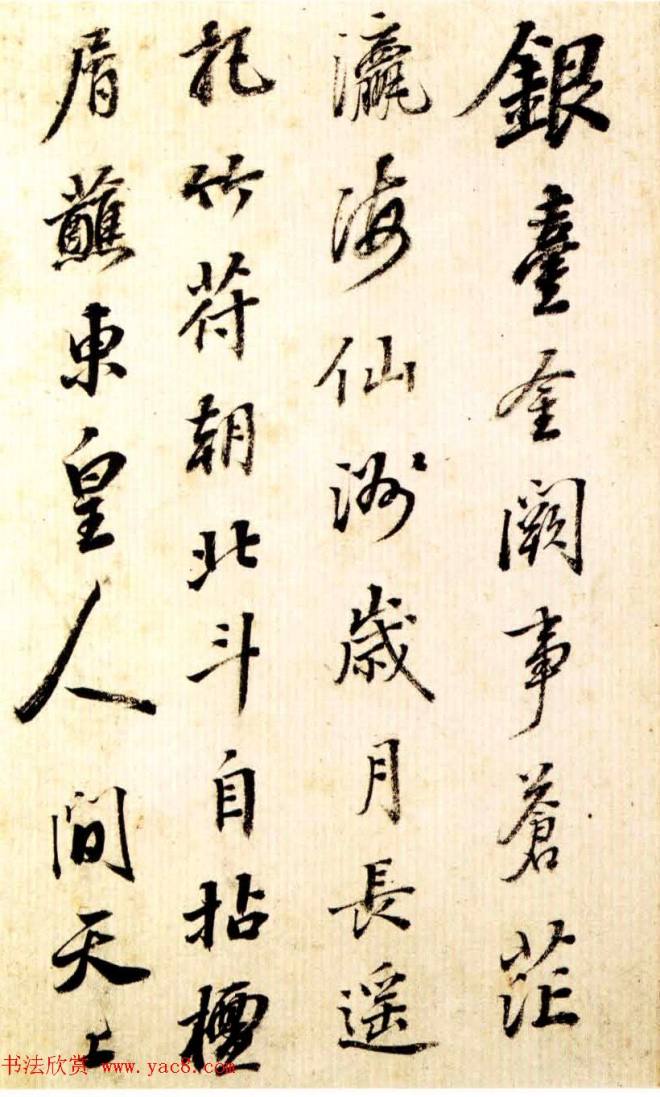 銀臺金闕事蒼茫
瀛海仙洲歲月長遥
把竹符朝北斗自拈檀
屑蘸東皇人間天上
书法欣赏 www.yac8.com